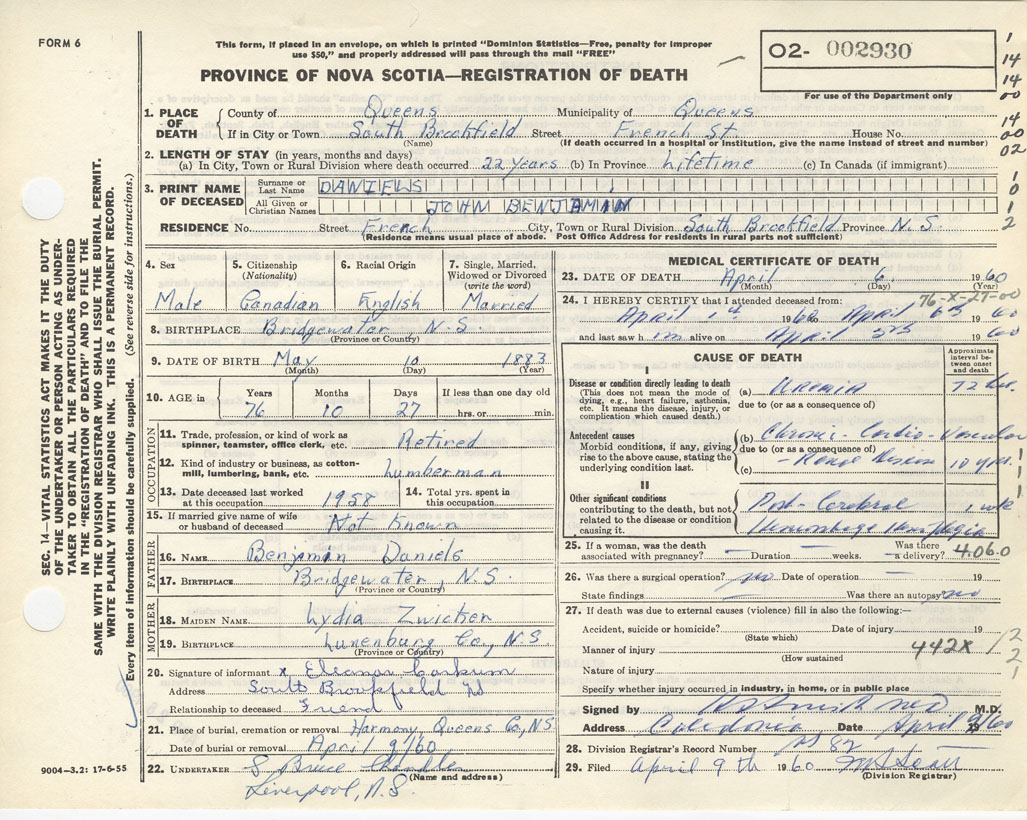 FORM 6
This form, if placed in an envelope, on which is printed "Dominion Statistics—Free, penalty for improper
use $50," and properly addressed will pass through the mail "FREE"
O2- 002930
For use of the Department only
PROVINCE OF NOVA SCOTIA—REGISTRATION OF DEATH
1
14
14
00
14
00
02
1
0
1
2
SEC. 14—VITAL STATISTICS ACT MAKES IT THE DUTY
OF THE UNDERTAKER OR PERSON ACTING AS UNDER-
TAKER TO OBTAIN ALL THE PARTICULARS REQUIRED
IN THE "REGISTRATION OF DEATH" AND FILE THE
SAME WITH THE DIVISION REGISTRAR WHO SHALL ISSUE THE BURIAL PERMIT.
WRITE PLAINLY WITH UNFADING INK. THIS IS A PERMANENT RECORD.
Every item of information should be carefully supplied. (See reverse side for instructions.)
1. PLACE OF DEATH
County of Queens Municipality of Queens
If in City or Town South Brookfield Street French St. House No.
(Name) (If death occurred in a hospital or institution, give the name instead of street and number)
2. LENGTH OF STAY (in years, months and days)
(a) In City, Town or Rural Division where death occurred 22 years (b) In Province Lifetime (c) In Canada (if immigrant)
3. PRINT NAME OF DECEASED
Surname or Last Name DANIELS
All Given or Christian Names JOHN BENJAMIN
RESIDENCE No. Street French City, Town or Rural Division South Brookfield Province N.S.
(Residence means usual place of abode. Post Office Address for residents in rural parts not sufficient)
4. Sex
Male
5. Citizenship (Nationality)
Canadian
6. Racial Origin
English
7. Single, Married, Widowed or Divorced (write the word)
Married
8. BIRTHPLACE Bridgewater, N.S.
(Province or Country)
9. DATE OF BIRTH May 10 1883
(Month) (Day) (Year)
10. AGE in
Years 76
Months 10
Days 27
If less than one day old
hrs. or min.
OCCUPATION
11. Trade, profession, or kind of work as spinner, teamster, office clerk, etc. Retired
12. Kind of industry or business, as cotton-mill, lumbering, bank, etc. Lumberman
13. Date deceased last worked at this occupation 1958
14. Total yrs. spent in this occupation
15. If married give name of wife or husband of deceased Not Known
FATHER
16. NAME Benjamin Daniels
17. BIRTHPLACE Bridgewater, N.S.
(Province or Country)
MOTHER
18. MAIDEN NAME Lydia Zwicker
19. BIRTHPLACE Lunenburg Co., N.S
(Province or Country)
20. Signature of informant x Eleanor
Address South Brookfield NS
Relationship to deceased Friend
21. Place of burial, cremation or removal Harmony Queens Co, NS
Date of burial or removal April 9/60
22. UNDERTAKER S Bruce Chandler
(Name and address)
Liverpool, N.S.
9004—3.2: 17-6-55
MEDICAL CERTIFICATE OF DEATH
23. DATE OF DEATH April 6 1960
(Month) (Day) (Year)
76-X-27-00
24. I HEREBY CERTIFY that I attended deceased from:
April 1st 1960 April 6th 1960
and last saw him alive on April 1960
CAUSE OF DEATH
Approximate interval between onset and death
I
Disease or condition directly leading to death
(This does not mean the mode of dying, e.g., heart failure, asthenia, etc. It means the disease, injury, or complication which caused death.)
(a) Uremia 72 hrs.
due to (or as a consequence of)
Antecedent causes
Morbid conditions, if any, giving rise to the above cause, stating the underlying condition last.
(b) Chronic - Cardio-Vascular
due to (or as a consequence of)
(c) - Renal Disease 10 yrs.
II
Other significant conditions contributing to the death, but not related to the disease or condition causing it.
Post-Cerebral 1 wk
Hemorrhage Hemiplegia
25. If a woman, was the death associated with pregnancy? Duration weeks. Was there a delivery?
4.06.0
26. Was there a surgical operation? no Date of operation 19
State findings Was there an autopsy no
27. If death was due to external causes (violence) fill in also the following:—
Accident, suicide or homicide? Date of injury 19
(State which)
Manner of injury 442X
(How sustained)
1
2
2
1
Nature of injury
Specify whether injury occurred in industry, in home, or in public place
Signed by M.D.
Address Caledonia Date April 9/60
28. Division Registrar's Record Number 82
29. Filed April 9th 1960
(Division Registrar)